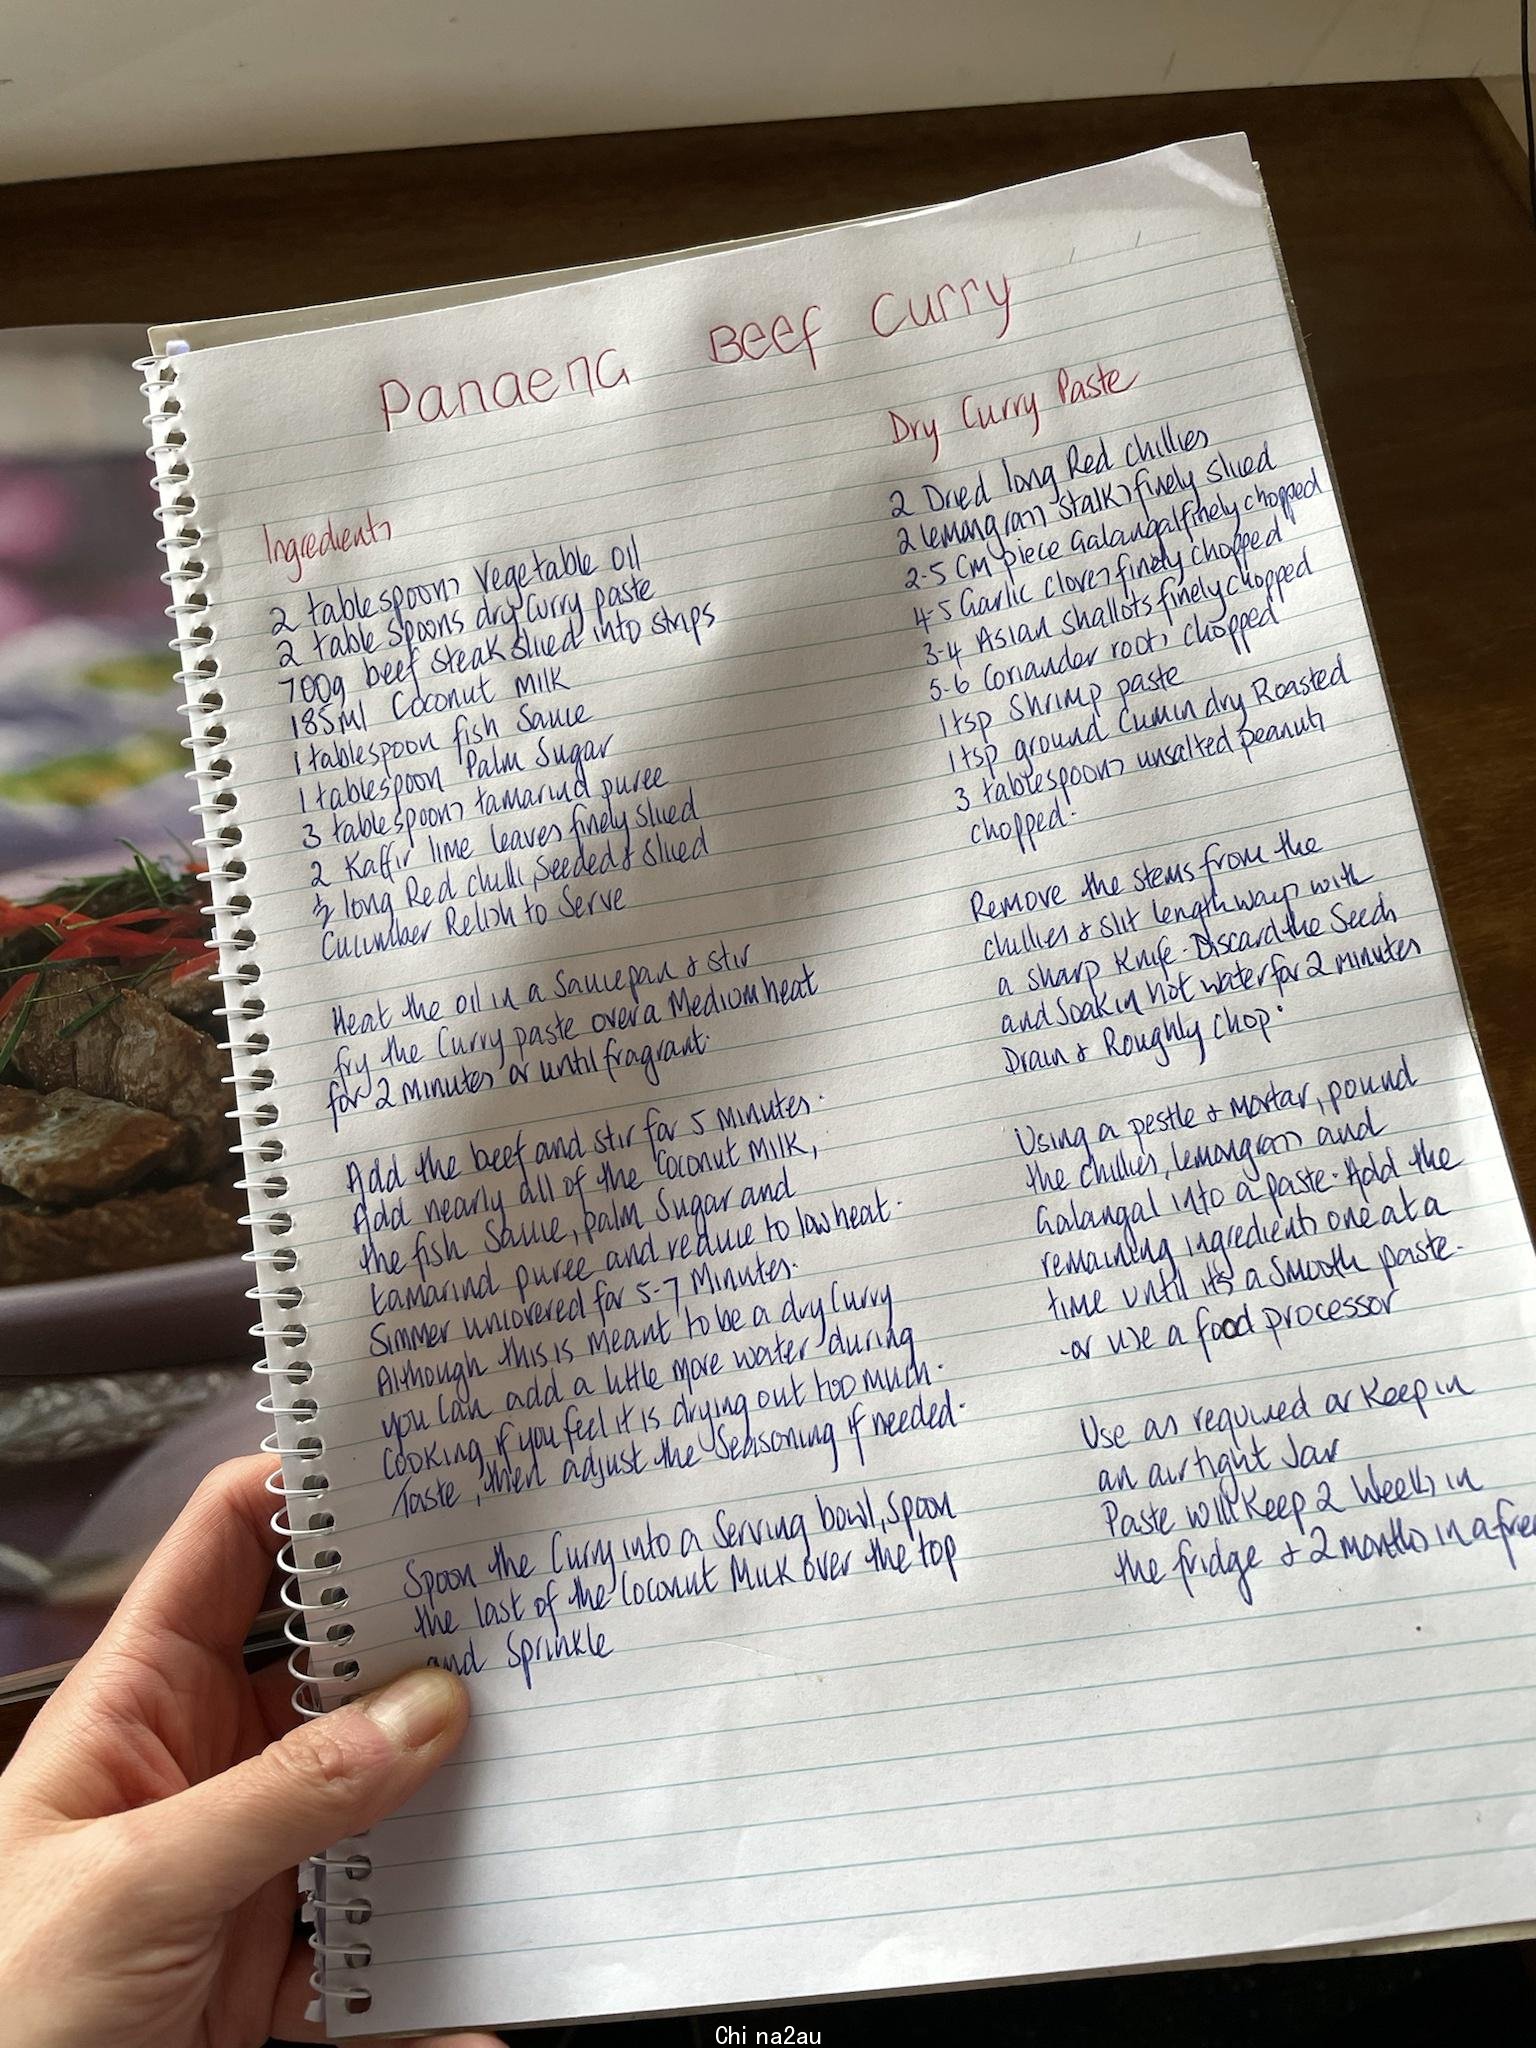 Panaeng Beef Curry
Ingredients
2 tablespoons Vegetable oil
2 table spoons dry Curry paste
700g beef steak sliced into strips
185ml Coconut milk
1 tablespoon fish Sauce
1 tablespoon Palm Sugar
3 tablespoons tamarind puree
2 Kaffir lime leaves finely sliced
½ long Red chilli, Seeded & sliced
Cucumber Relish to Serve
Heat the oil in a Saucepan & stir
fry the Curry paste over a Medium heat
for 2 minutes or until fragrant.
Add the beef and stir for 5 minutes.
Add nearly all of the Coconut milk,
the fish Sauce, palm Sugar and
tamarind puree and reduce to low heat.
Simmer uncovered for 5-7 Minutes.
Although this is meant to be a dry Curry
you can add a little more water during
Cooking if you feel it is drying out too much.
Taste, then adjust the Seasoning if needed.
Spoon the Curry into a Serving bowl, Spoon
the last of the Coconut Milk over the top
and Sprinkle
Dry Curry Paste
2 Dried long Red chillies
2 lemongrass stalks finely sliced
2-5 Cm piece Galangal finely chopped
4-5 Garlic cloves finely chopped
3-4 Asian shallots finely chopped
5-6 Coriander roots chopped
1 tsp Shrimp paste
1 tsp ground Cumin dry Roasted
3 tablespoons unsalted peanuts
chopped.
Remove the stems from the
chillies & slit lengthways with
a sharp Knife. Discard the Seeds
and Soak in hot water for 2 minutes
Drain & Roughly chop.
Using a pestle & mortar, pound
the chillies, lemongrass and
Galangal into a paste. Add the
remaining ingredients one at a
time until it's a smooth paste.
-or use a food processor
Use as required or Keep in
an airtight Jar
Paste will Keep 2 Weeks in
the fridge & 2 months in a
Chi na2au